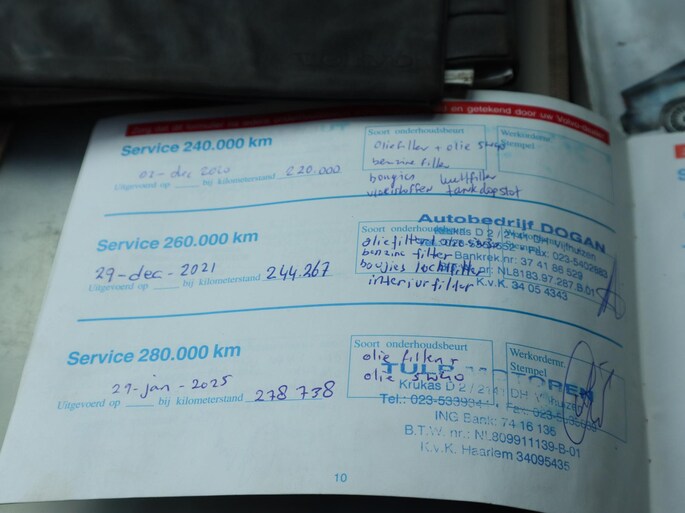 en getekend door uw Volvo-dealer
Service 240.000 km
02-dec 2020 220.000
Uitgevoerd op ____ bij kilometerstand
Soort onderhoudsbeurt
oliefilter + olie
benzine filter
bougies luchtfilter
vloeistoffen
Werkordernr.
Stempel
Service 260.000 km
29-dec-2021 244.267
Uitgevoerd op ____ bij kilometerstand
Soort onderhoudsbeurt
oliefilter
benzine filter
boujies luchtfilter
interiurfilter
Autobedrijf DOGAN
Krukas D 2 / 2141 DH Vijfhuizen
Fax: 023-5402883
Bankrek.nr: 37 41 86 529
nr. NL8183.97.287.B.01
K.v.K. 34 05 4343
Service 280.000 km
29-jan-2025 278738
Uitgevoerd op ____ bij kilometerstand
Soort onderhoudsbeurt
olie filter +
olie
Werkordernr.
Stempel
TULP MOTOREN
Krukas D 2 / 2141 DH Vijfhuizen
Tel.: 023-5339
ING Bank: 74 16 135
B.T.W. nr.: NL809911139-B-01
K.v.K. Haarlem 34095435
10